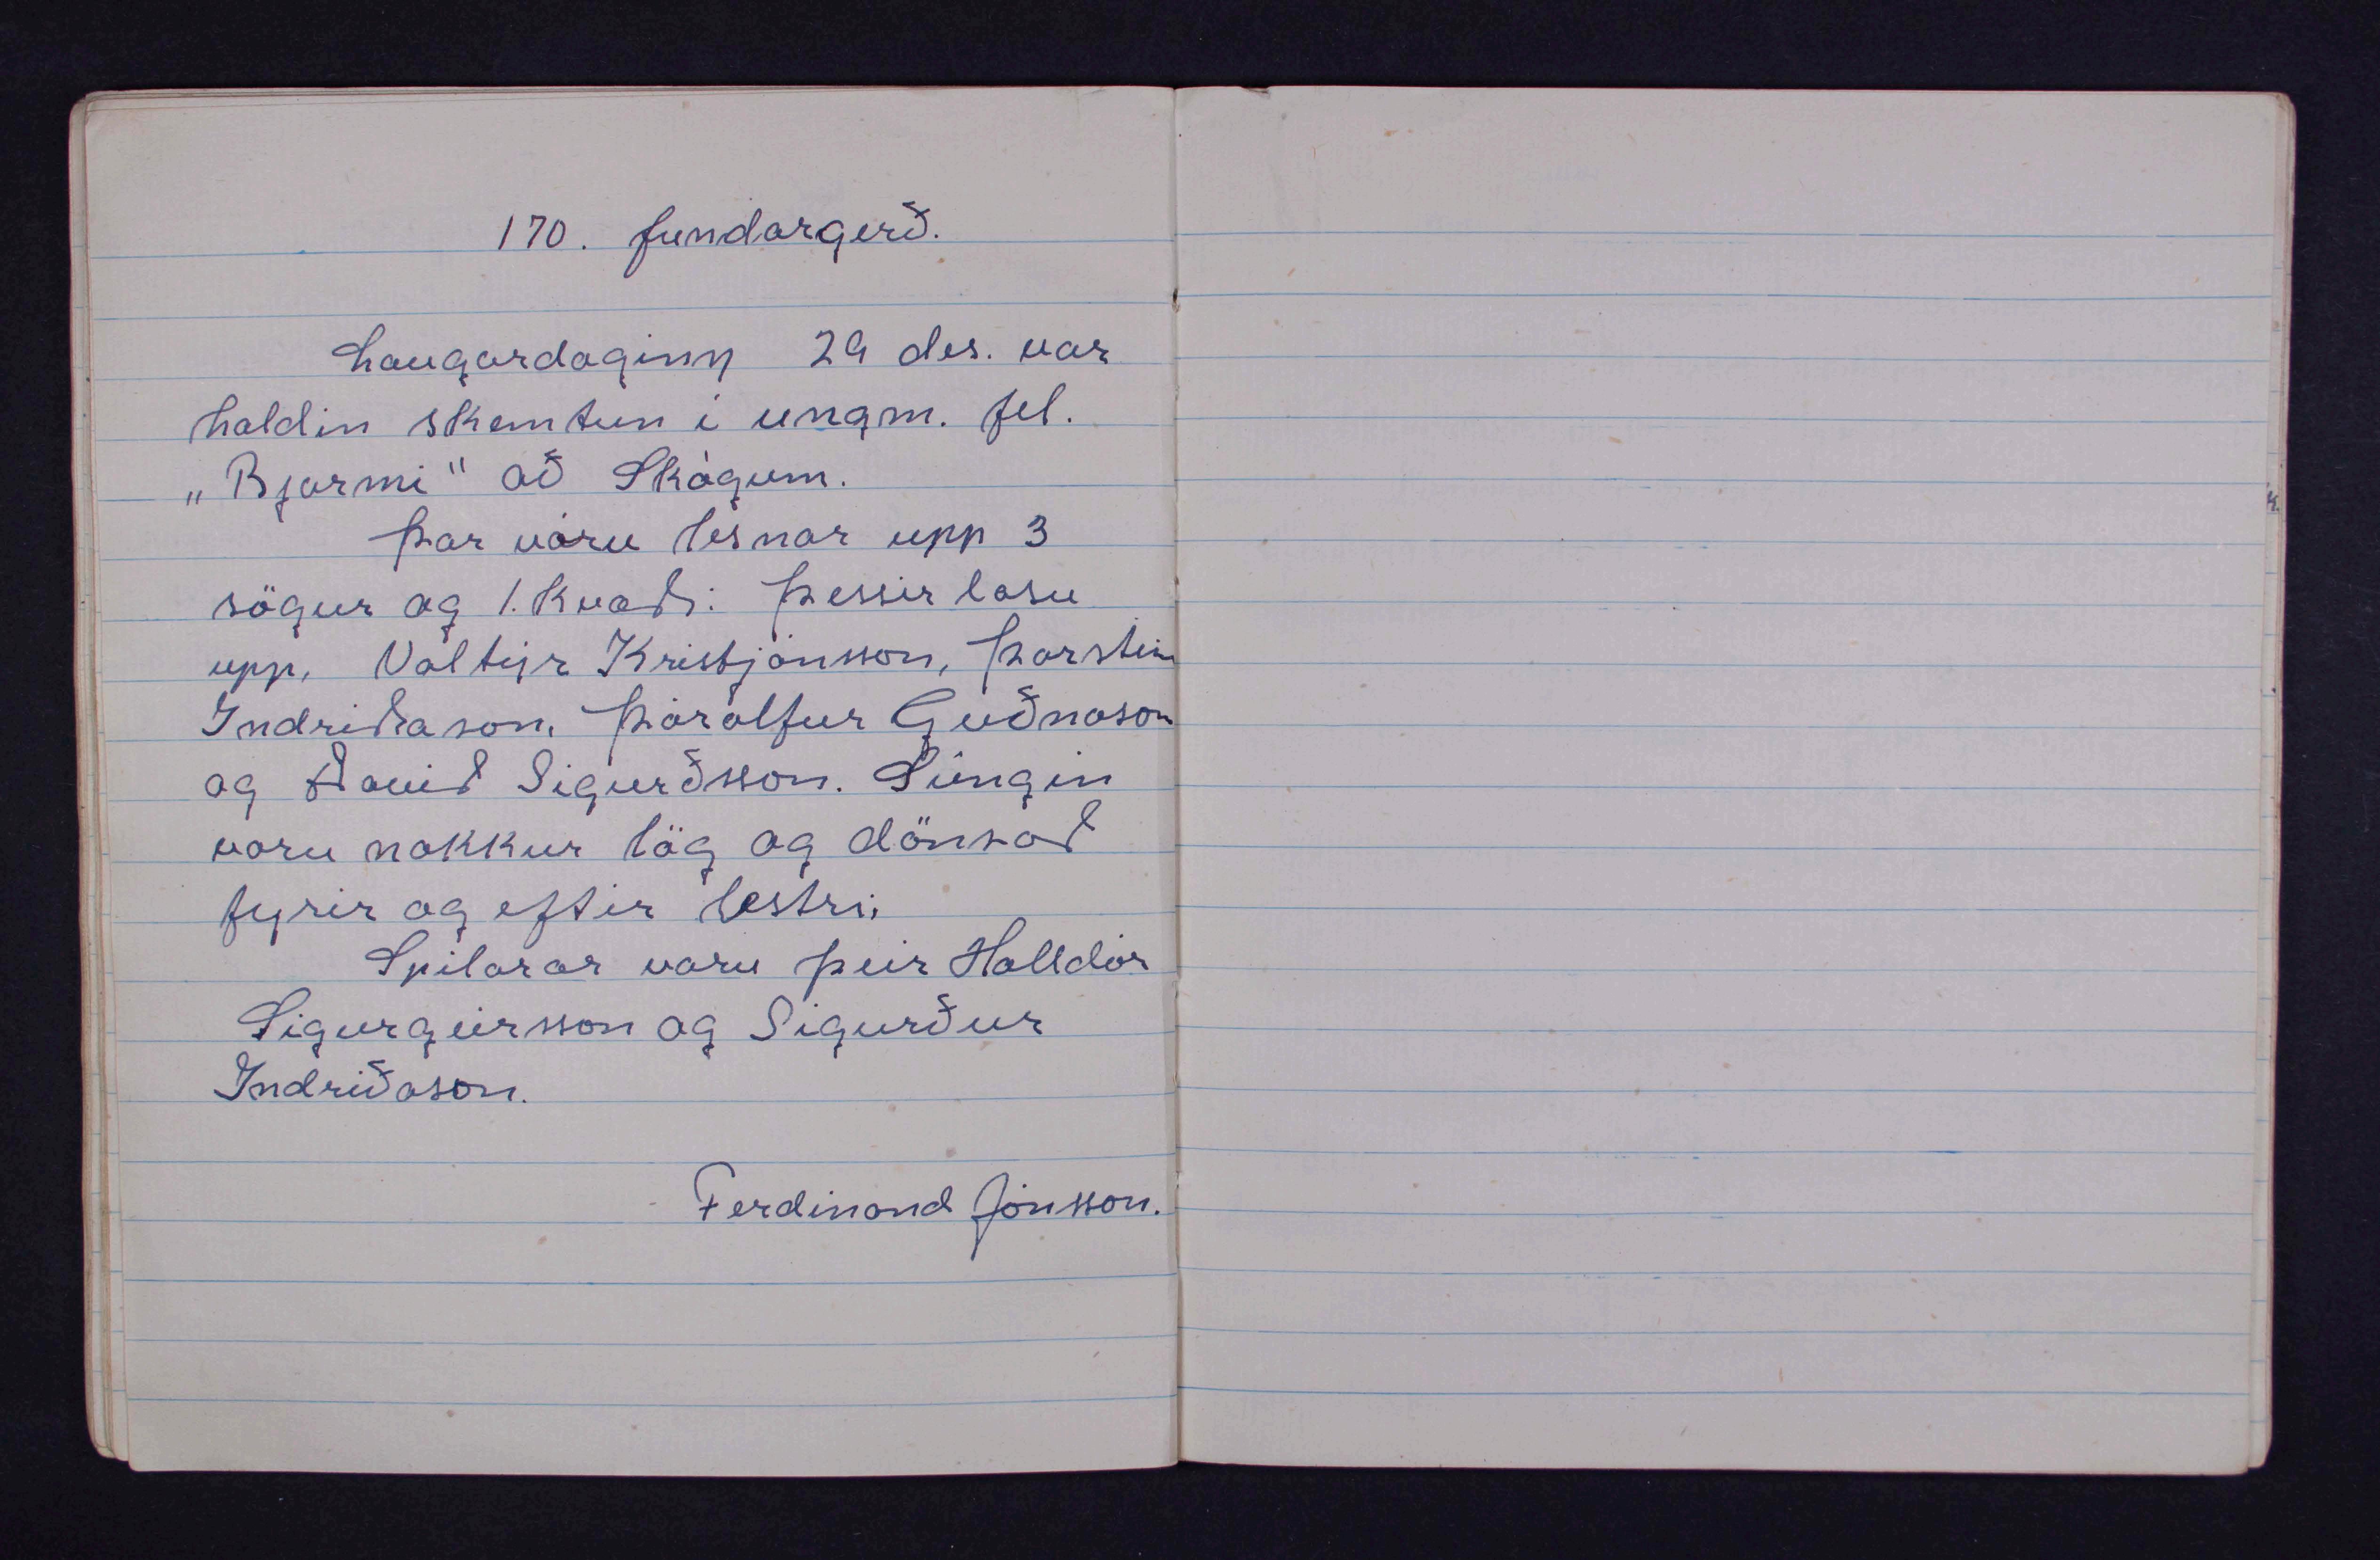 170. fundargerð.
Laugardaginn 29 des. var
haldin skemtun í ungm. fel.
„Bjarmi" að Skógum.
Þar vóru lesnar upp 3
sögur og 1. kvæði: Þessir lásu
upp, Valtýr Kristjónsson, Þorstein
Indriðason, Þórólfur Guðnason
og Davið Sigurðsson. Súngin
voru nokkur lög og dönsað
fyrir og eftir lestri.
Spilarar voru þeir Halldór
Sigurgeirsson og Sigurður
Indriðason.
Ferdinand Jónsson.